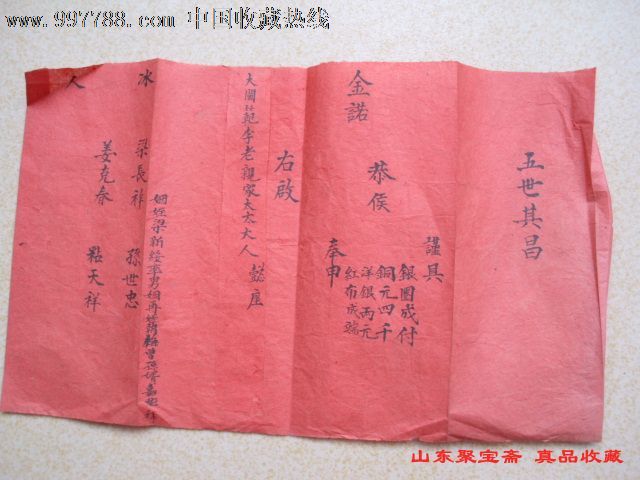 www.997788.com 中国收藏热线
五世其昌
謹具
銀圈成付
銅元四千
洋銀兩元
紅布成端
奉申
恭侯
金諾
右啟
大閫范李老親家太太大人 懿座
姻姪梁新
冰人
梁長祚
孫世忠
姜克春
天祥
山东聚宝斋 真品收藏